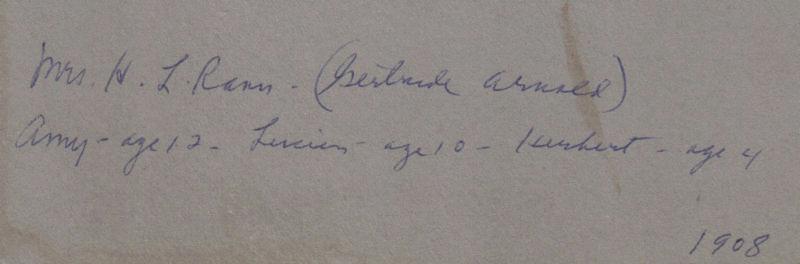 Mrs. H. L. Rann - (Gertrude Arnold)
Amy - age 12 - Lucien - age 10 - Herbert - age 4
1908